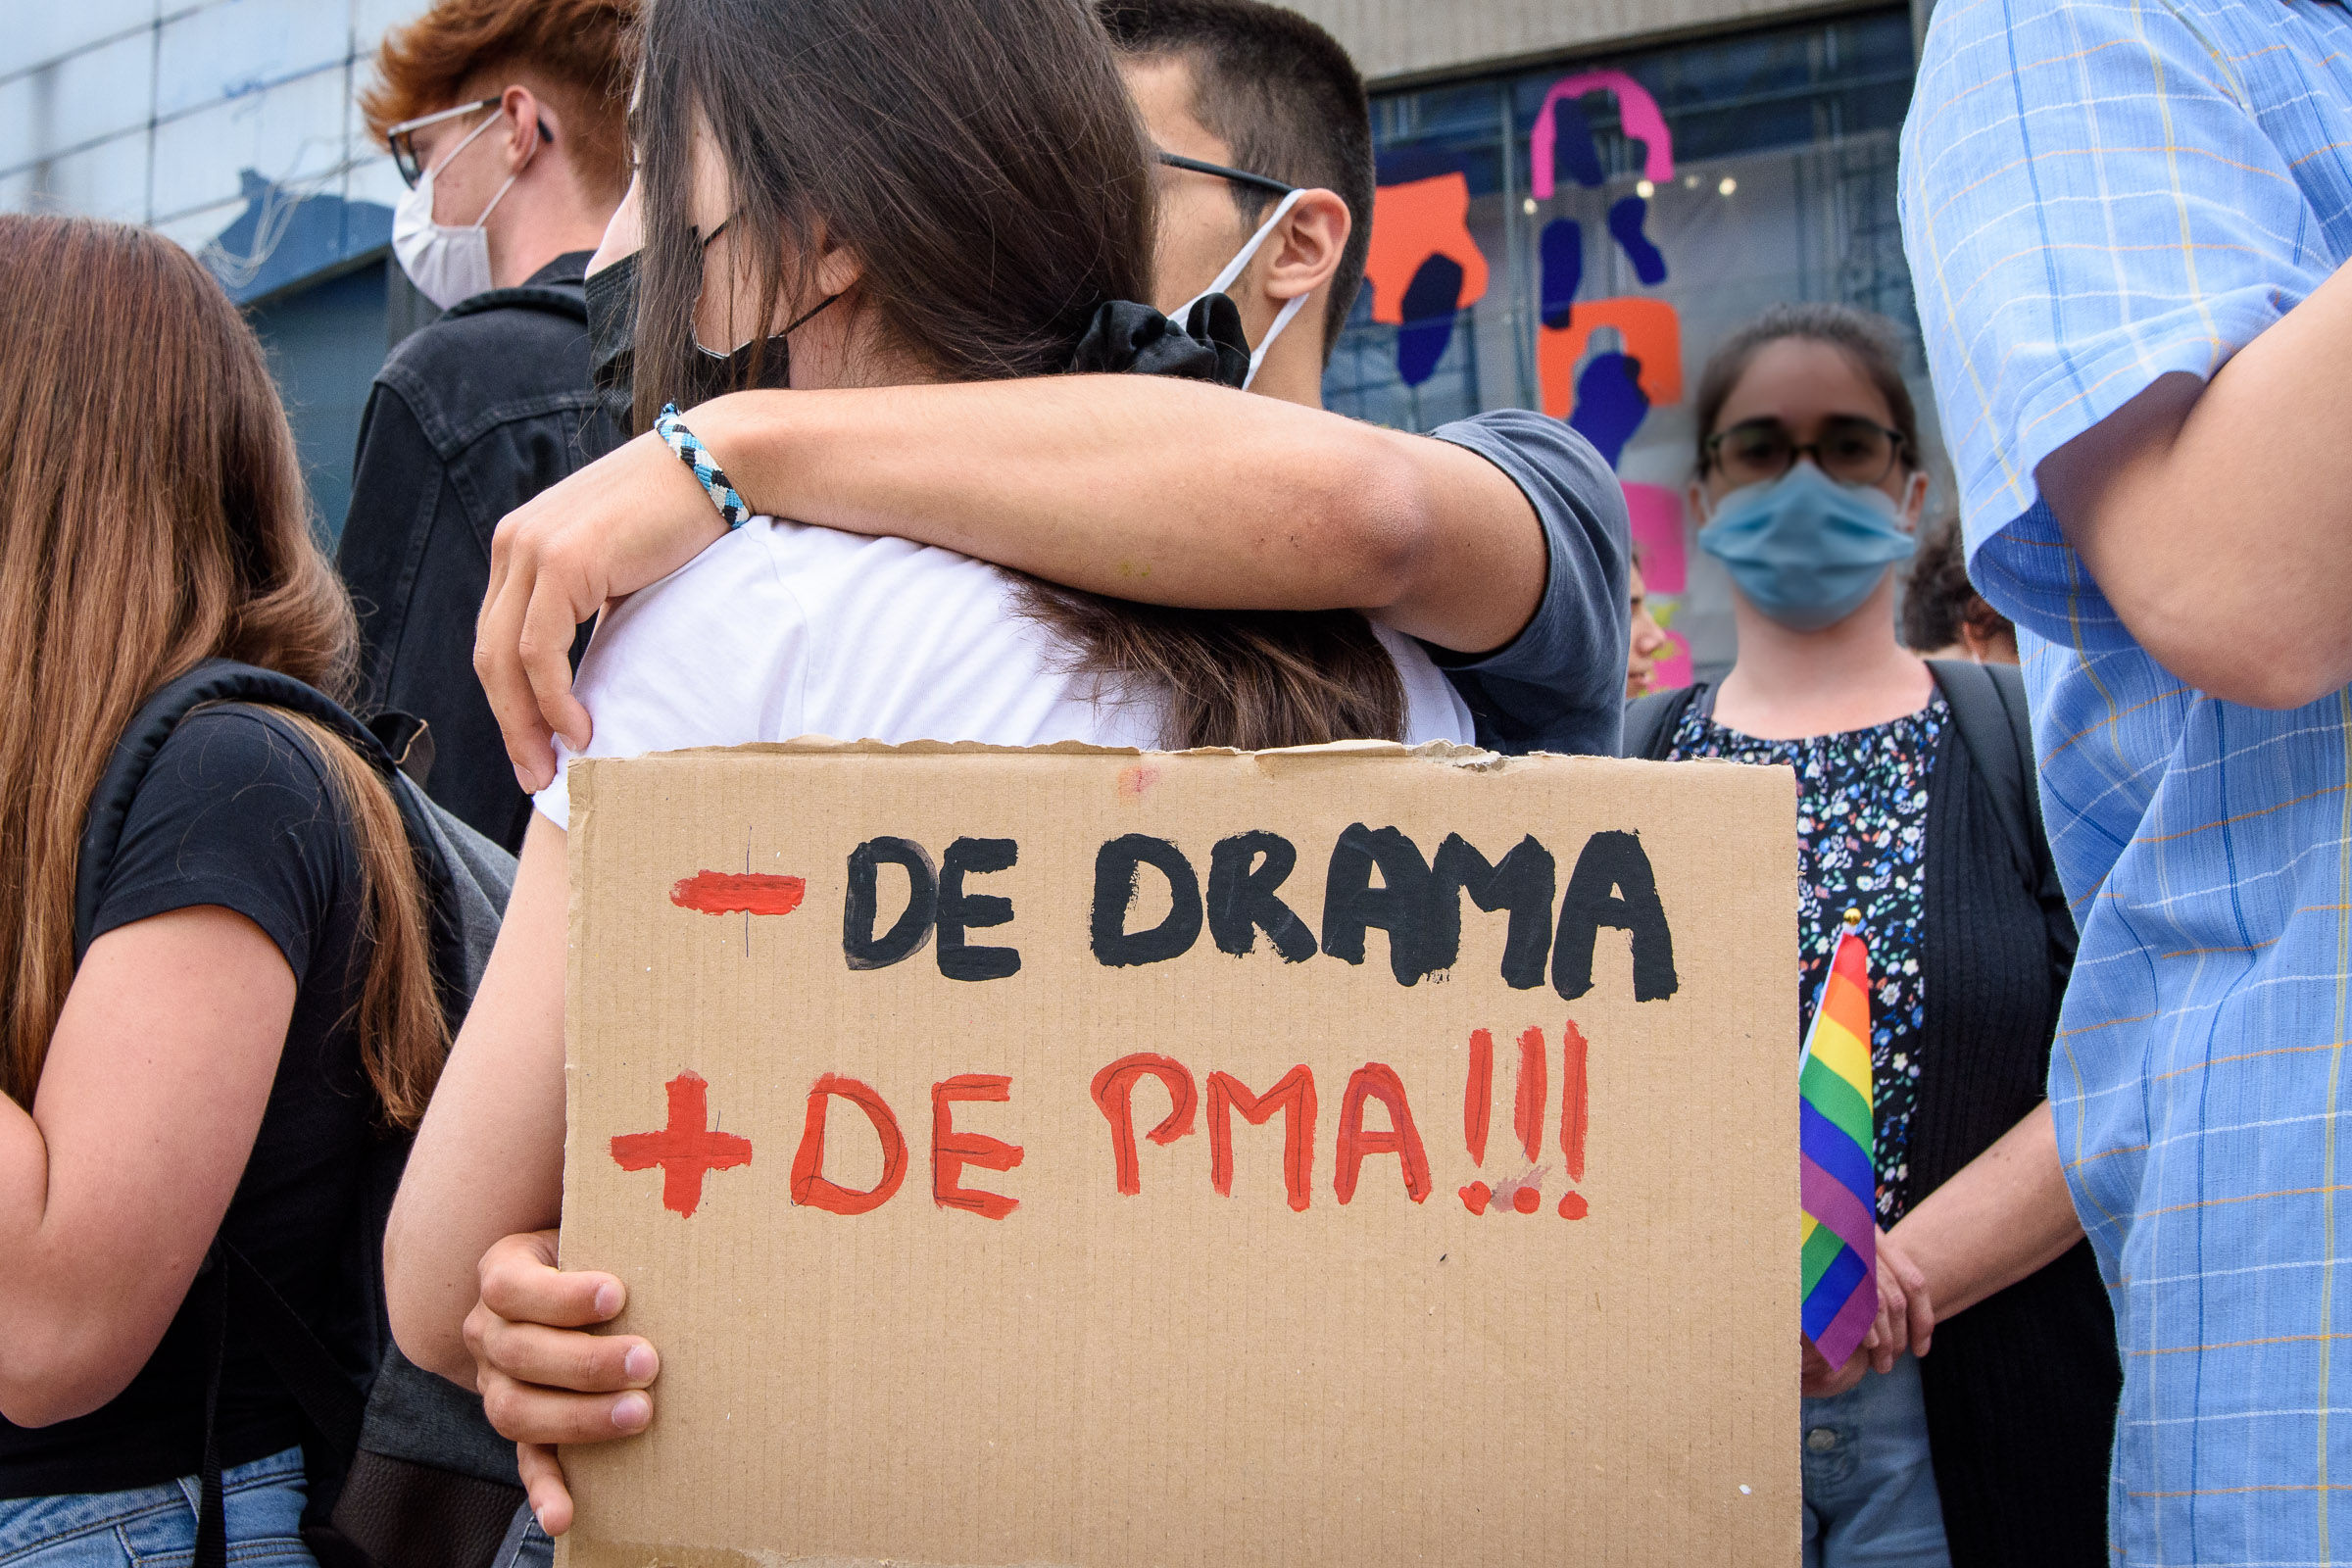 - DE DRAMA
+ DE PMA!!!